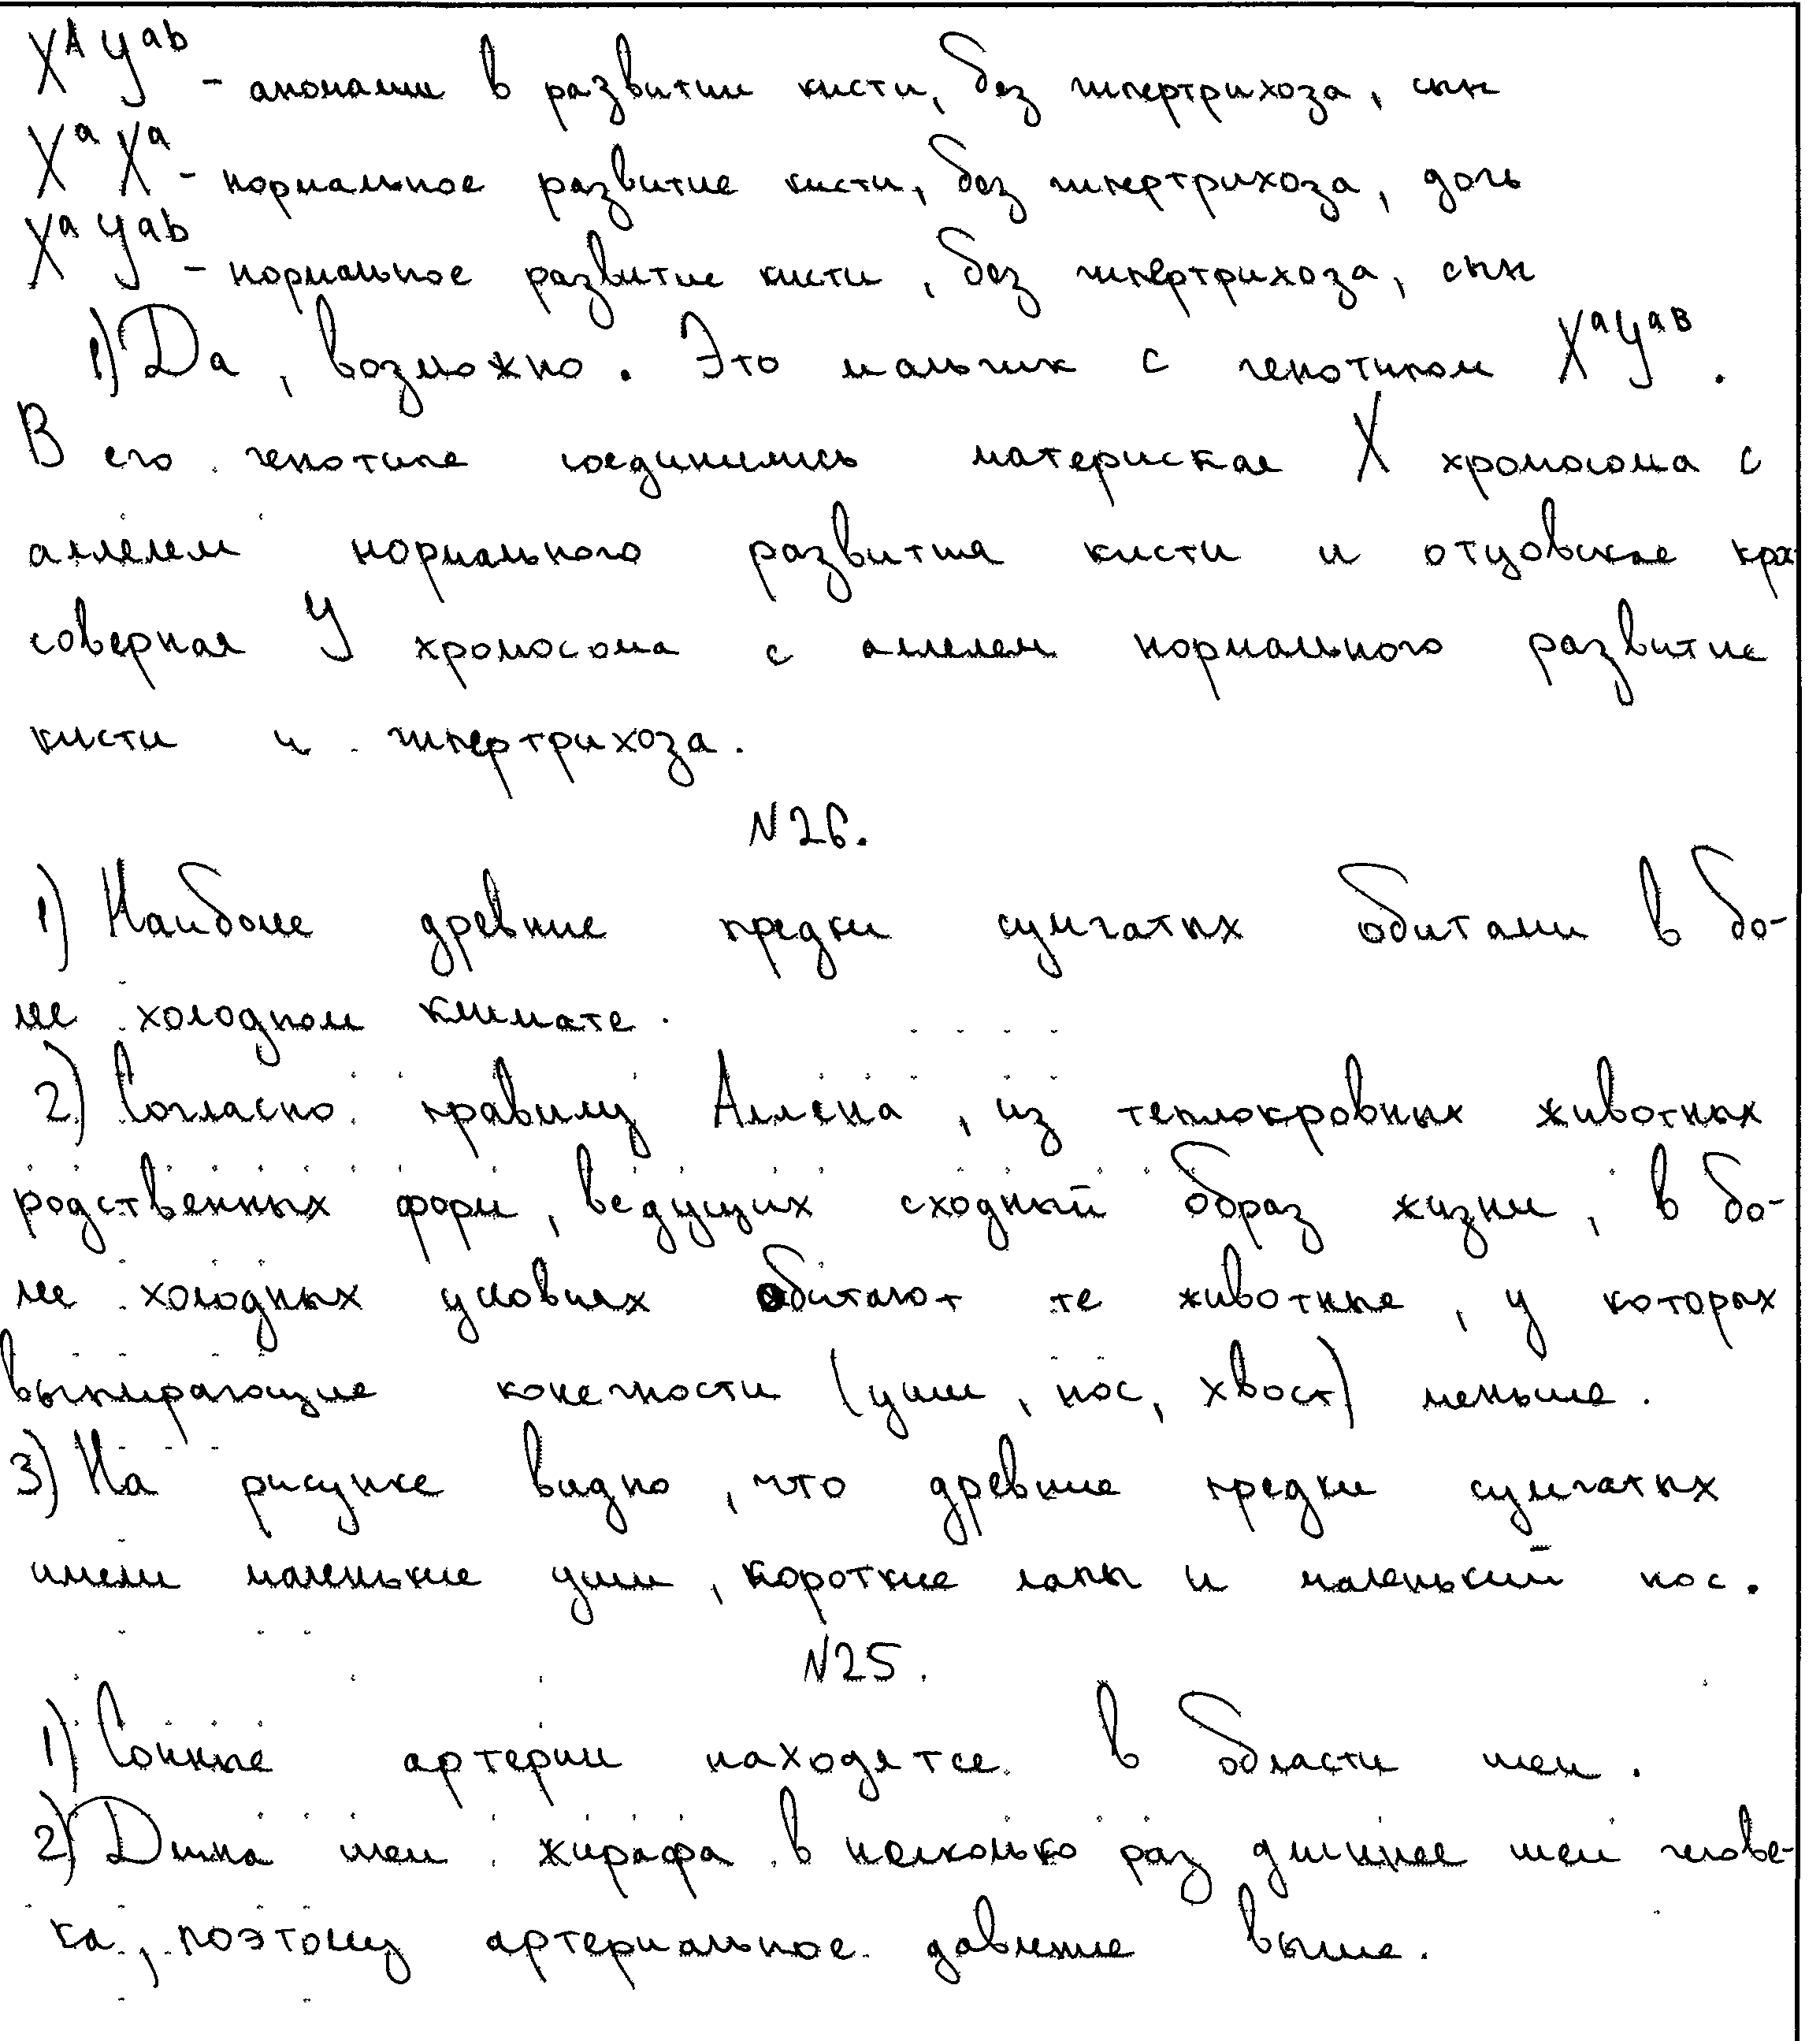 X^A Y^ab - аномалии в развитии кисти, без гипертрихоза, сын
X^a X^a - нормальное развитие кисти, без гипертрихоза, дочь
X^a Y^ab - нормальное развитие кисти, без гипертрихоза, сын
1) Да, возможно. Это мальчик с генотипом X^a Y^aB.
В его генотипе соединились материская X хромосома с
аллелем нормального развития кисти и отцовская крос
соверная Y хромосома с аллелем нормального развитие
кисти и гипертрихоза.
N26.
1) Наиболе древние предки сумчатых обитали в бо-
лее холодном климате.
2) Согласно правилу Аллена, из теплокровных животных
родственных форм, ведущих сходный образ жизни, в бо-
лее холодных условиях обитают те животные, у которых
выпирающие конечности (уши, нос, хвост) меньше.
3) На рисунке видно, что древние предки сумчатых
имели маленькие уши, короткие лапы и маленький нос.
N25.
1) Сонные артерии находятся в области шеи.
2) Длина шеи жирафа в несколько раз длиннее шеи челове-
ка, поэтому артериальное давление выше.